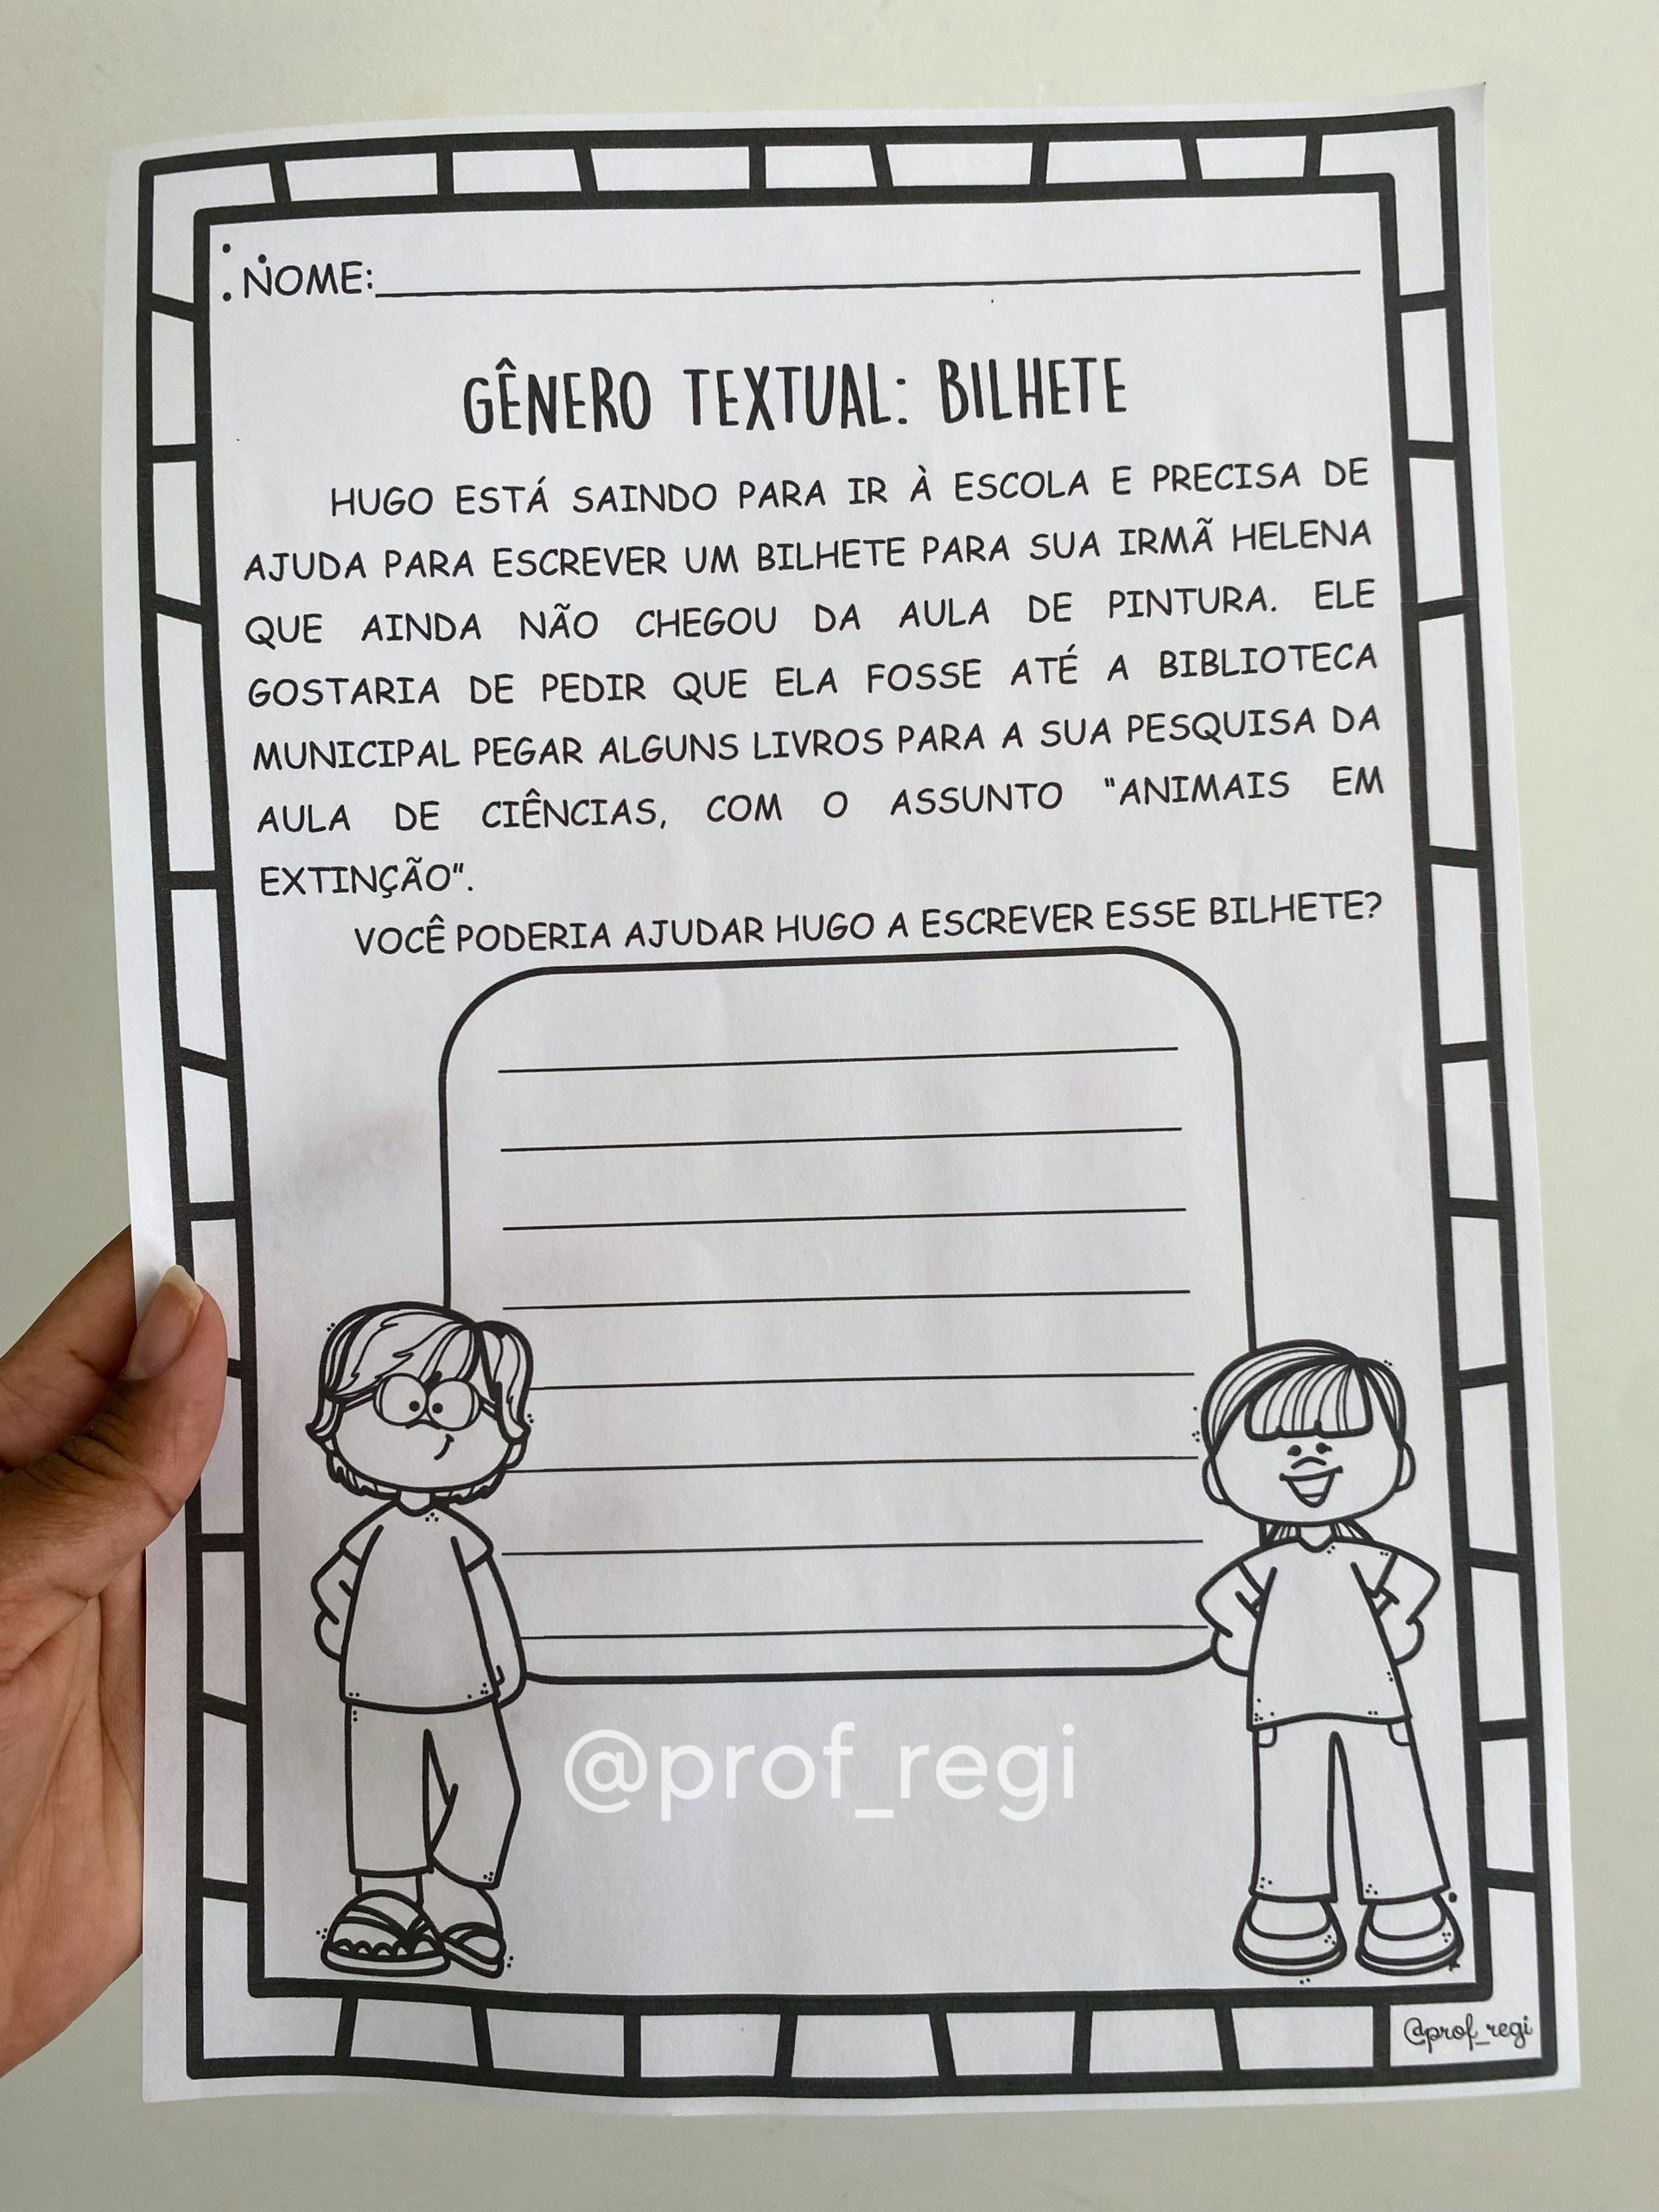 NOME:
GÊNERO TEXTUAL: BILHETE
HUGO ESTÁ SAINDO PARA IR À ESCOLA E PRECISA DE
AJUDA PARA ESCREVER UM BILHETE PARA SUA IRMÃ HELENA
QUE AINDA NÃO CHEGOU DA AULA DE PINTURA. ELE
GOSTARIA DE PEDIR QUE ELA FOSSE ATÉ A BIBLIOTECA
MUNICIPAL PEGAR ALGUNS LIVROS PARA A SUA PESQUISA DA
AULA DE CIÊNCIAS, COM O ASSUNTO "ANIMAIS EM
EXTINÇÃO".
VOCÊ PODERIA AJUDAR HUGO A ESCREVER ESSE BILHETE?
@prof_regi
@prof_regi